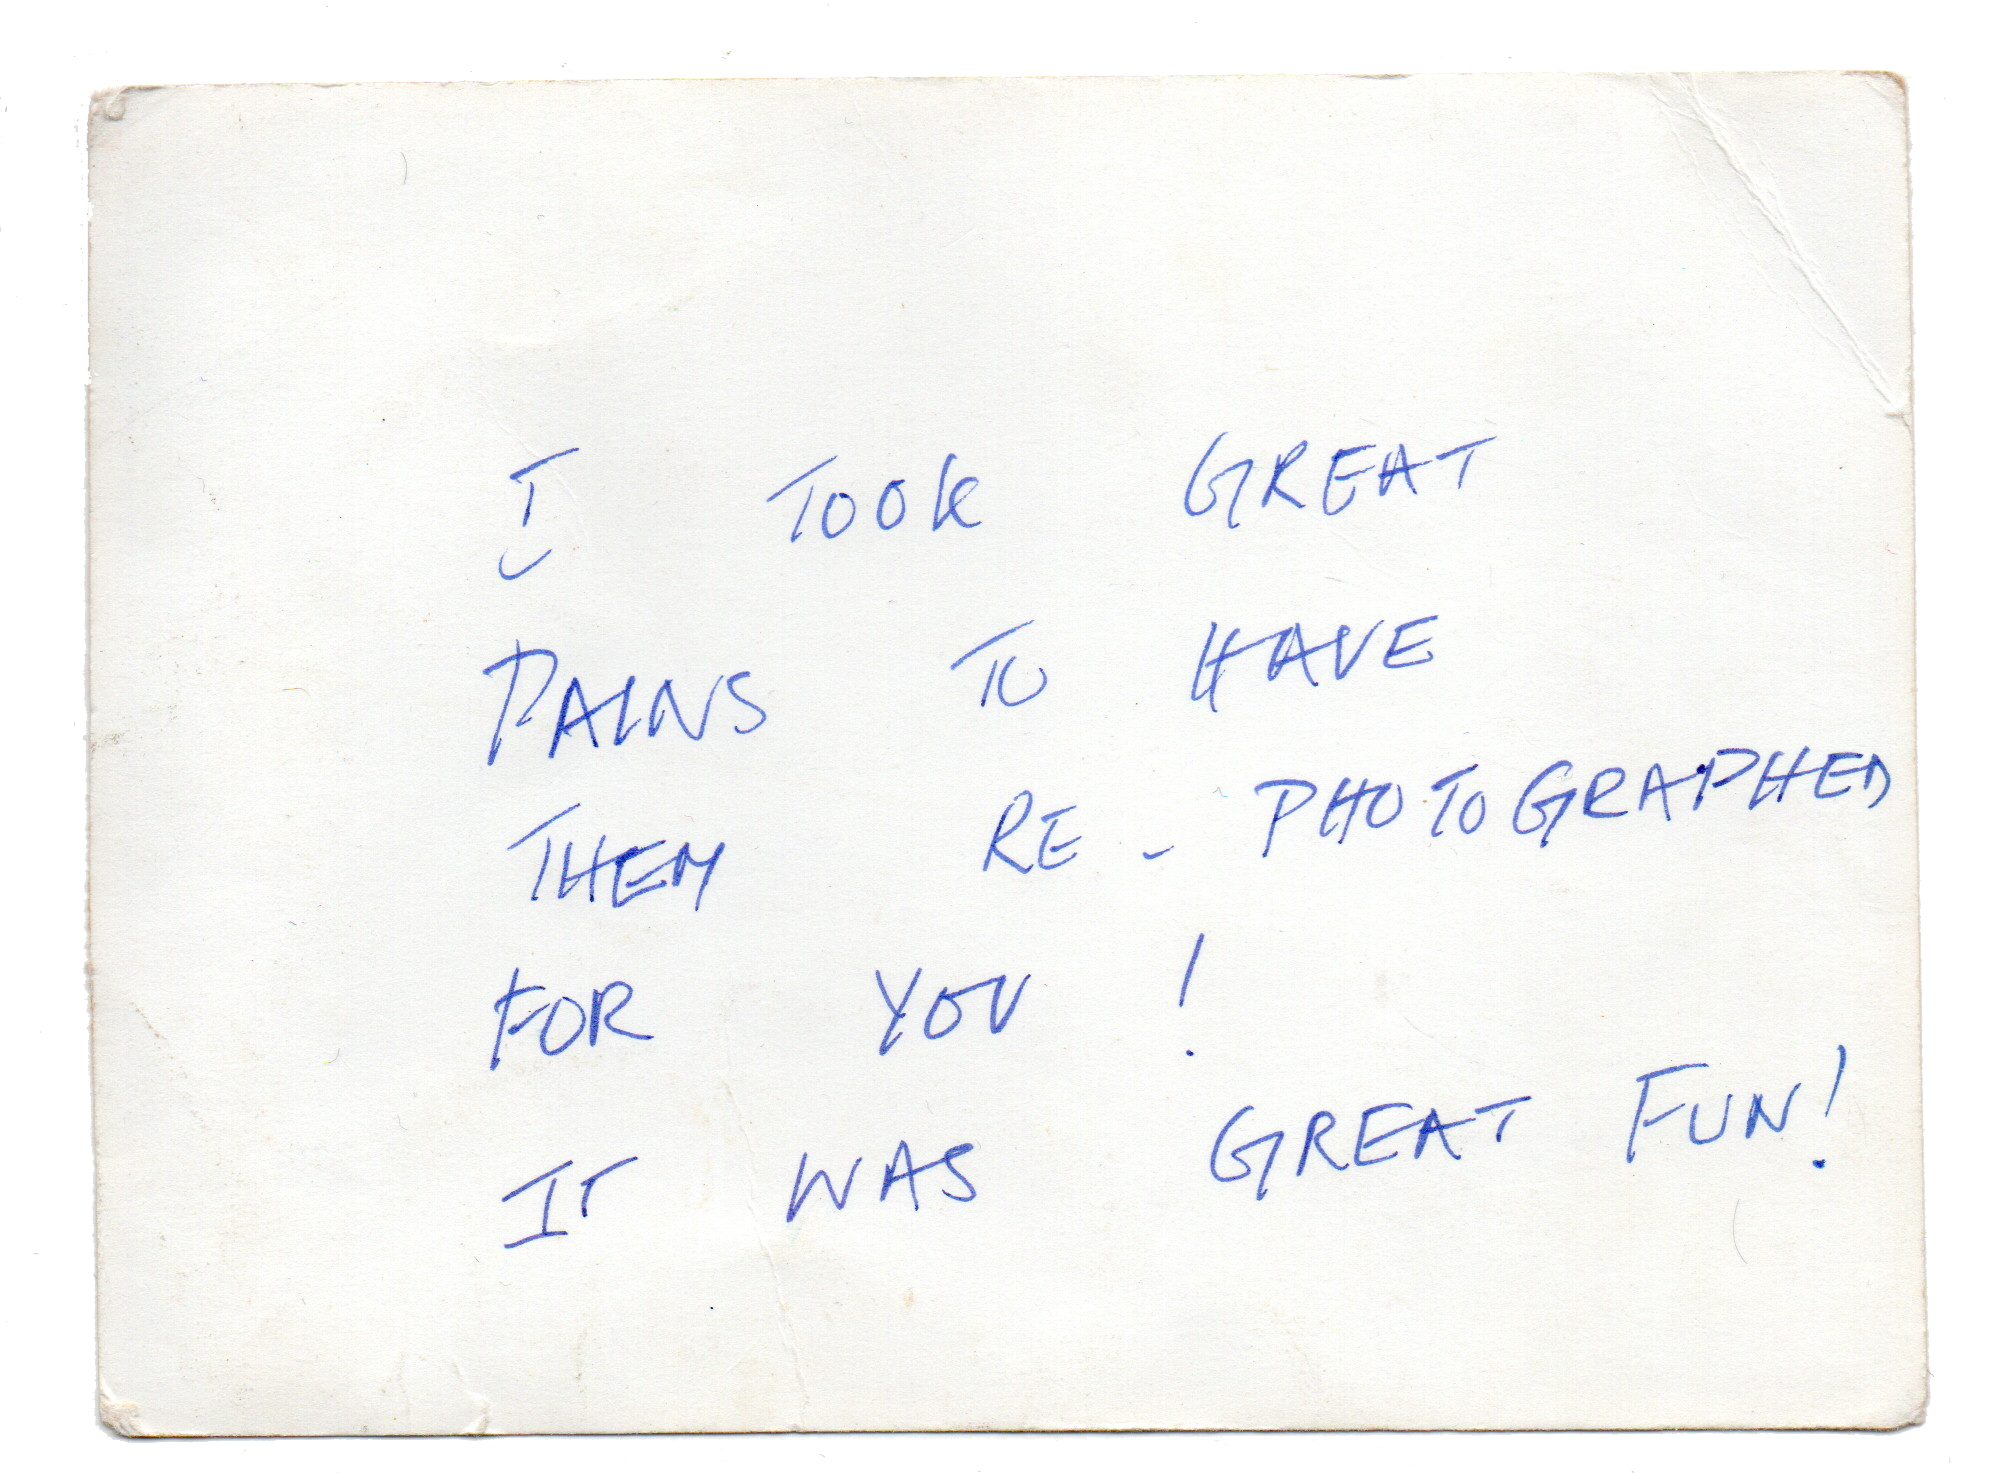 I TOOK GREAT
PAINS TO HAVE
THEM RE-PHOTOGRAPHED
FOR YOU!
IT WAS GREAT FUN!